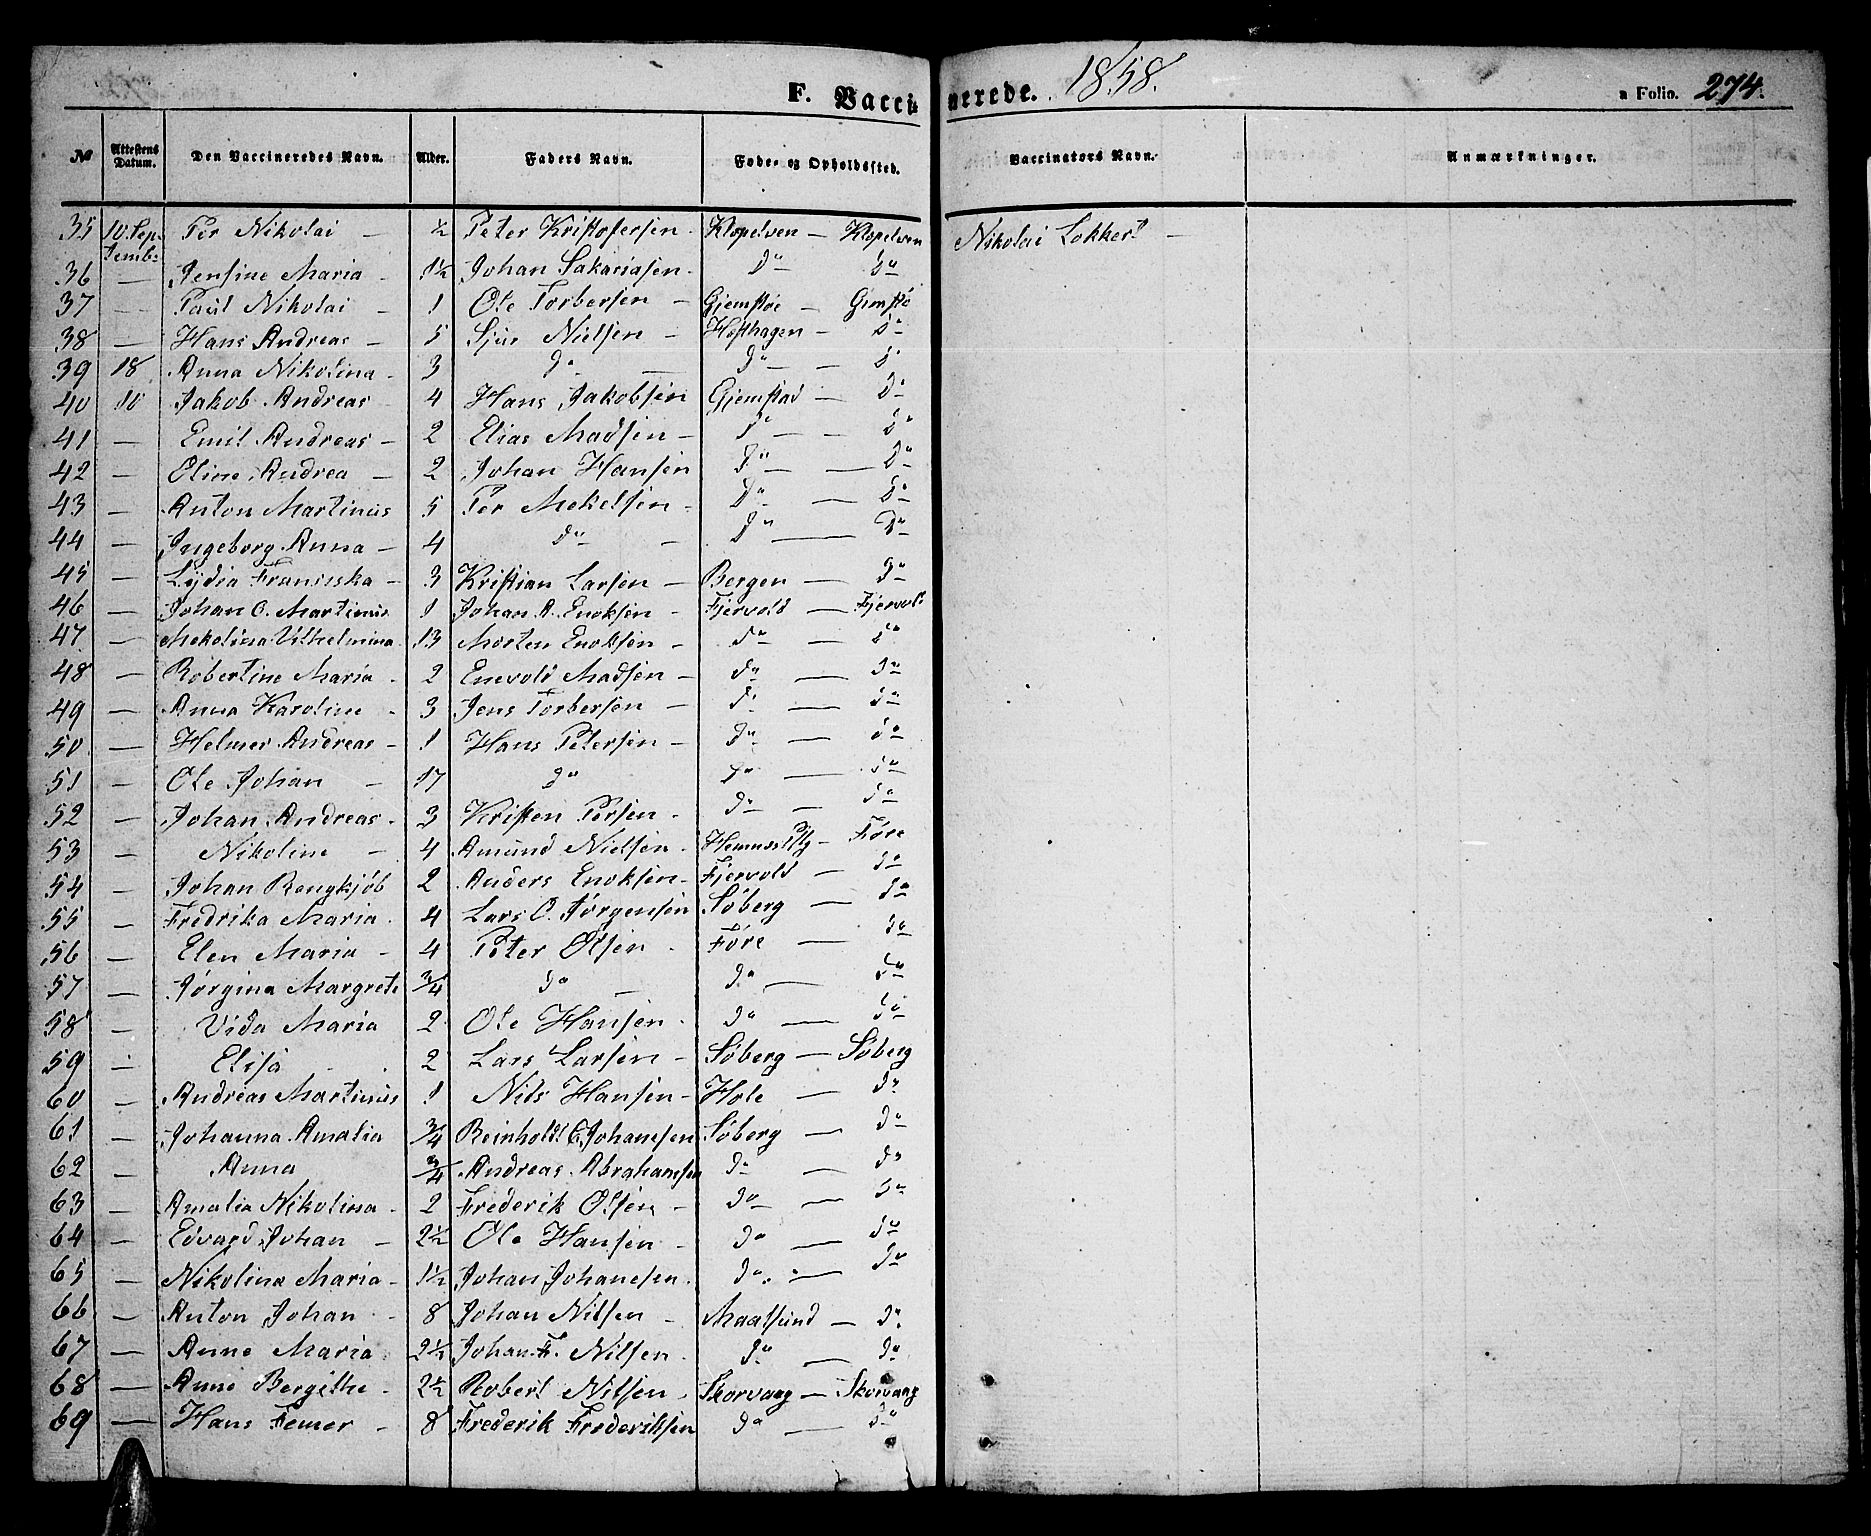 F. Vaccinerede. 1858. a Folio. 274.
№ Attestens Datum. Den Vaccineredes Navn. Alder. Faders Navn. Føde- og Opholdssted. Vaccinators Navn. Anmærkninger.
35 10. Sep- Per Nikolai — ½ Peter Kristofersen - Klopelven — Klopelven Nikolai Lokkert —
temb:
36 — Jensine Maria - 1½ Johan Sakariasen - do — do
37 — Paul Nikolai - 1 Ole Torbersen — Gjemsføe — Gimsfø
38 — Hans Andreas — 5 Sjur Nielsen — Hofthagen — do
39 18 Anna Nikolina - 3 do — do — do
40 10 Jakob Andreas - 4 Hans Jakobsen Gjemstad — do
41 — Emil Andreas - 2 Elias Madsen — do — do
42 — Eline Andrea — 2 Johan Hansen do — do
43 — Anton Martinus 5 Per Mekelsen - do — do
44 — Ingeborg Anna — 4 do - do — do
45 — Lydia Franciska - 3 Kristian Larsen — Bergen — do
46 — Johan C. Martinus 1 Johan A. Enoksen - Fjervold — Fjervold
47 — Mekolina Vilhelmina 13 Morten Enoksen - do — do
48 — Robertine Maria - 2 Enevold Madsen — do — do
49 — Anna Karoline - 3 Jens Torbersen — do — do
50 — Helmer Andreas - 1 Hans Petersen — do — do
51 — Ole Johan - 17 do do — do
52 — Johan Andreas - 3 Kristen Persen - do — do
53 — Nikoline - 4 Amund Nielsen - — Føre
54 — Johan Bengkjøb 2 Anders Enoksen - Fjervold — do
55 — Fredrika Maria - 4 Lars O. Jørgensen Søberg — do
56 — Elen Maria - 4 Peter Olsen - Føre — do
57 — Jørgina Margrete ¾ do — do — do
58 — Vida Maria 2 Ole Hansen - do — do
59 — Elisa 2 Lars Larsen — Søberg — Søberg
60 — Andreas Martinus 1 Nils Hansen — Hole — do
61 — Johanna Amalia ¾ Reinhold C. Johansen Søberg — do
62 — Anna ¾ Andreas Abrahamsen do — do
63 — Amalia Nikolina - 2 Frederik Olsen - do — do
64 — Edvard Johan — 2½ Ole Hansen - do — do
65 — Nikolina Maria - 1½ Johan Johanesen - do — do
66 — Anton Johan - 8 Johan Nilsen - Maalsund — do
67 — Anne Maria 2½ Johan F. Nilsen - do — do
68 — Anne Bergithe - 2½ Robert Nilsen - Skorvang — Skorvang
69 — Hans Femer - 8 Frederik Frederiksen do — do